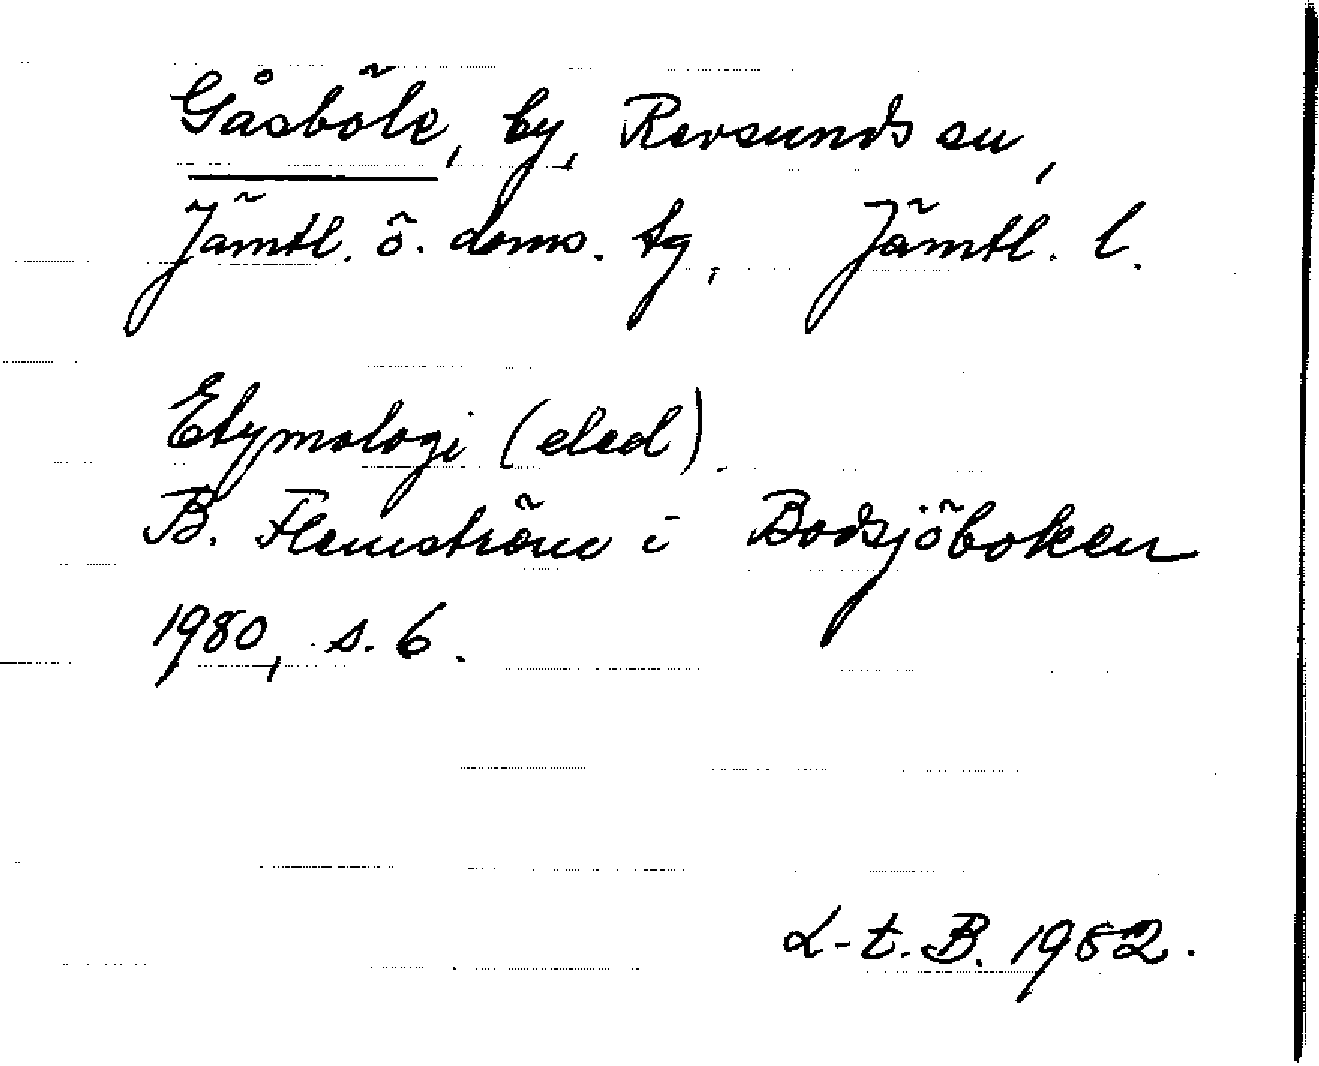 Gåsböle, by, Revsunds sn,
Jämtl. ö. doms. tg, Jämtl. l.
Etymologi (eled).
B. Flemström i Bodsjöboken
1980, s. 6.
L-t. B. 1982.